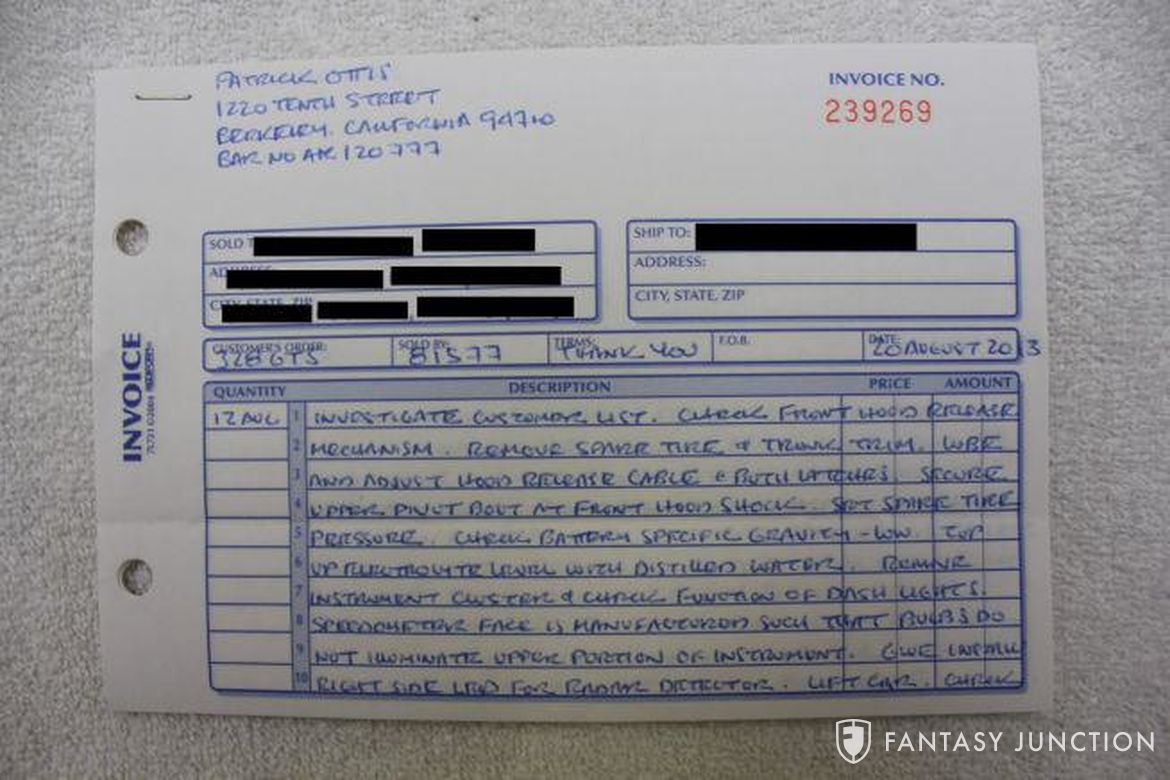 PATRICK OTTIS
1220 TENTH STREET
BERKELEY. CALIFORNIA 94710
BAR NO AK 120777
INVOICE NO.
239269
SOLD T
SHIP TO:
ADDRESS:
ADDRESS:
CITY, STATE, ZIP
CITY, STATE, ZIP
CUSTOMER'S ORDER: SOLD BY: TERMS: F.O.B. DATE:
328 GTS 81577 THANK YOU 20 AUGUST 2013
INVOICE
QUANTITY DESCRIPTION PRICE AMOUNT
12 AUG 1 INVESTIGATE CUSTOMER LIST. CHECK FRONT HOOD RELEASE
2 MECHANISM. REMOVE SPARE TIRE & TRUNK TRIM. LUBE
3 AND ADJUST HOOD RELEASE CABLE & BOTH LATCHES. SECURE
4 UPPER PIVOT BOLT AT FRONT HOOD SHOCK. SET SPARE TIRE
5 PRESSURE. CHECK BATTERY SPECIFIC GRAVITY - LOW. TOP
6 UP ELECTROLYTE LEVEL WITH DISTILLED WATER. REMOVE
7 INSTRUMENT CLUSTER & CHECK FUNCTION OF DASH LIGHTS.
8 SPEEDOMETER FACE IS MANUFACTURED SUCH THAT BULBS DO
9 NOT ILLUMINATE UPPER PORTION OF INSTRUMENT. GLUE INSTALL
10 RIGHT SIDE LEAD FOR RADAR DETECTOR. LIFT CAR. CHECK
FANTASY JUNCTION